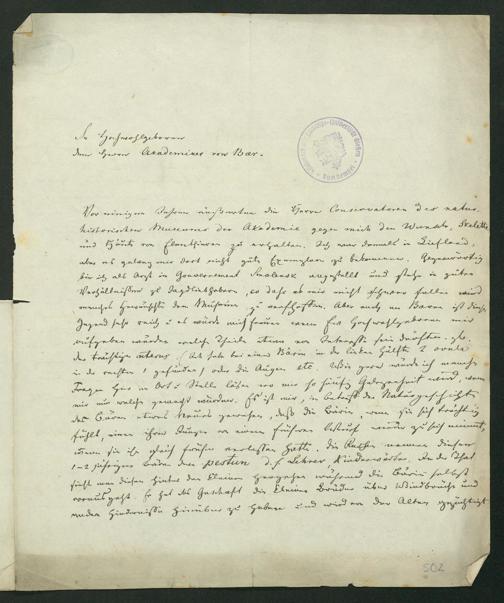 Sr Hochwohlgeboren
dem Herrn Academiker von Baer.
Vor einigen Jahren äußerten die Herrn Conservatoren des natur-
historischen Museums der Akademie gegen mich den Wunsch, Skelette
und Häute von Elenthieren zu erhalten. Ich war damals in Livland,
aber es gelang mir dort nicht gute Exemplare zu bekommen. Gegenwärtig
bin ich als Arzt im Gouvernement Smolensk angestellt und stehe in guten
Verhältnissen zu Jagdliebhabern, so daß es mir nicht schwer fallen wird
manches Gewünschte dem Museum zu verschaffen. Aber auch an Bären ist diese
Gegend sehr reich und es würde mich freuen wenn Ew Hochwohlgeboren mir
aufgeben würden welche Theile etwa von Interesse sein dürften. z.B.
der trächtige uterus (ich habe bei einer Bärin in der linken Hälfte 2 ovula
in der rechten 1 gefunden) oder die Augen etc. Wie gern würde ich manche
Fragen hier an Ort und Stelle lösen wo mir so häufig Gelegenheit wird, wenn
mir nur welche gemacht würden. Es ist mir, in betreff der Naturgeschichte
des Bären etwas Neues gewesen, daß die Bärin, wenn sie sich trächtig
fühlt, einen ihrer Jungen von einem frühern Wurf wieder zu sich nimmt,
wenn sie ihn gleich früher verlassen hatte. Die Russen nennen diesen
1-2 jährigen Bären den pestun d.h. Lehrer, Kinderwärter. In der That
sieht man diesen hinter den Kleinen hergehen während die Bärin selbst
vorausgeht. Er hat das Geschäft die kleinen Brüder über Windbrüche und
andere Hindernisse hinüber zu heben und wird von der Alten gezüchtigt
502